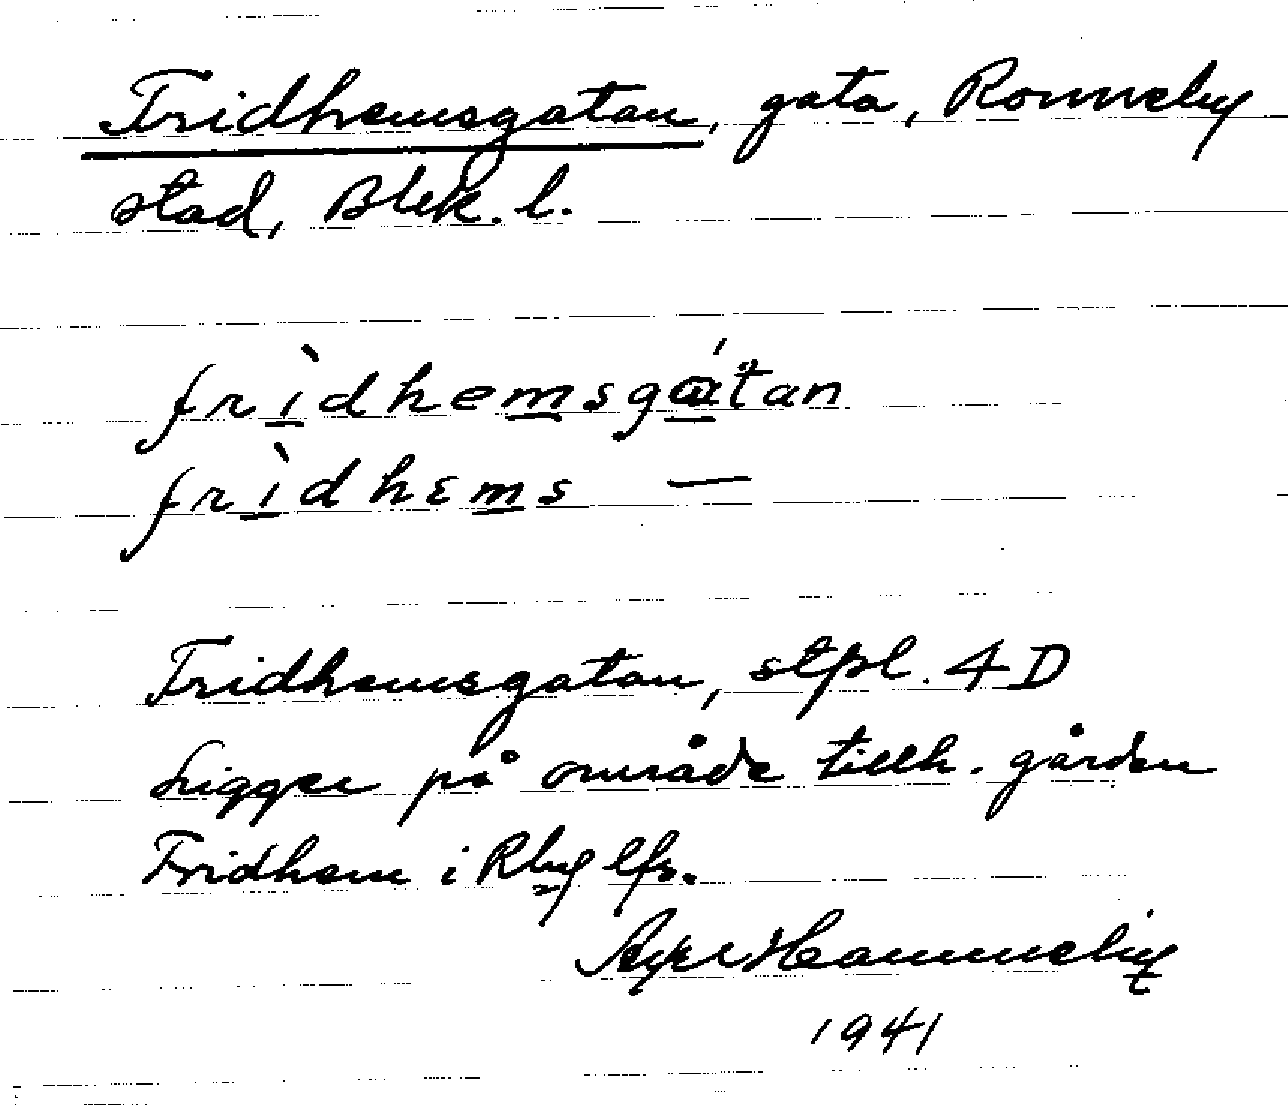 Fridhemsgatan, gata, Ronneby
stad, Blek. l.
frìdhemsgátan
frìdhɛms —
Fridhemsgatan, stpl. 4 D
Ligger på område tillh. gården
Fridhem i Rby lfs.
1941